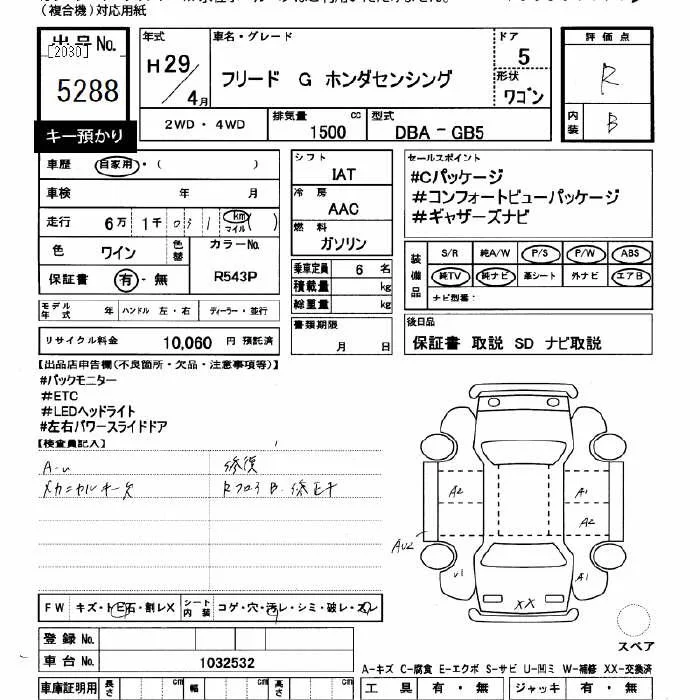 (複合機)対応用紙
出品No. [2030]
5288
キー預かり
年式
H29/4月
車名・グレード
フリード G ホンダセンシング
ドア
5
形状
ワゴン
評価点
R
内装
B
2WD・4WD
排気量 cc
1500
型式
DBA - GB5
車歴 自家用・( )
車検 年 月
走行 6万 1千 031 km マイル ( )
色 ワイン
色替
カラーNo.
R543P
保証書 有・無
モデル年式 年 ハンドル 左・右 ディーラー・並行
リサイクル料金 10,060 円 預託済
シフト
IAT
冷房
AAC
燃料
ガソリン
乗車定員 6 名
積載量 kg
総重量 kg
書類期限
月 日
セールスポイント
#Cパッケージ
#コンフォートビューパッケージ
#ギャザーズナビ
装備品
S/R 純A/W P/S P/W ABS
純TV 純ナビ 革シート 外ナビ エアB
ナビ型番:
後日品
保証書 取説 SD ナビ取説
【出品店申告欄(不良箇所・欠品・注意事項等)】
#バックモニター
#ETC
#LEDヘッドライト
#左右パワースライドドア
【検査員記入】
A-u
修復
メカニカルキー欠
RフロアB.修正キ
A2
A1
A2
AU2
U1
A1
XX
スペア
FW キズ・トビ石・割レX
シート内装 コゲ・穴・汚レ・シミ・破レ・スレ
登録No.
車台No. 1032532
A-キズ C-腐食 E-エクボ S-サビ U-凹ミ W-補修 XX-交換済
車庫証明用 長さ cm 幅 cm 高さ cm
工具 有・無 ジャッキ 有・無